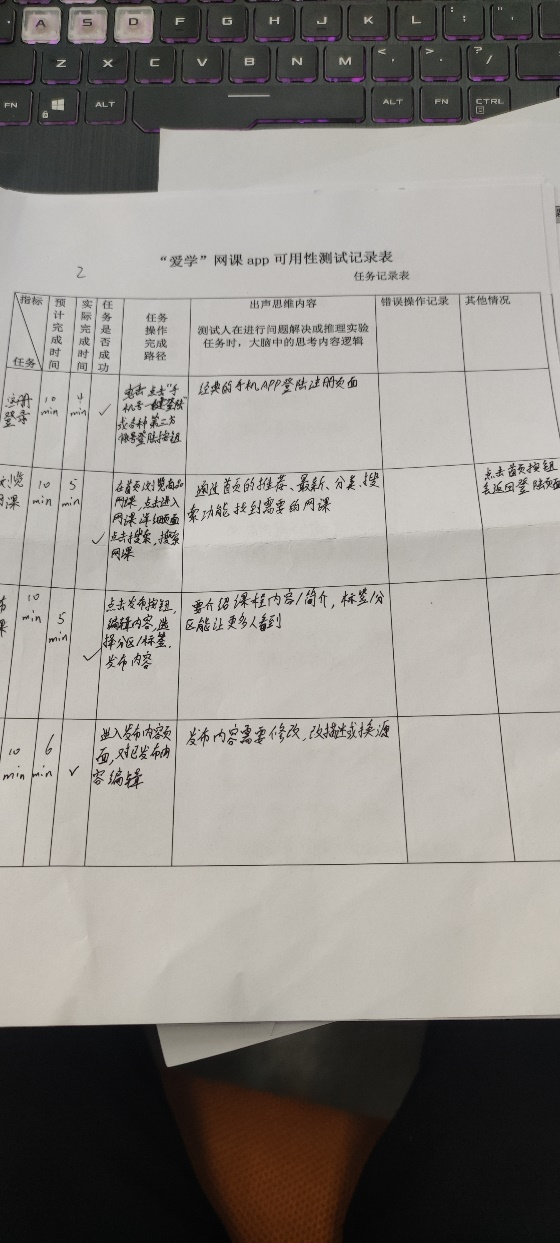 A S D F G H J K L : ; " '
Z X C V B N M < , > . ? /
FN ALT ALT FN CTRL
2
“爱学”网课 app 可用性测试记录表
任务记录表
指标
任务
预计完成时间
实际完成时间
任务是否成功
任务操作完成路径
出声思维内容
测试人在进行问题解决或推理实验
任务时，大脑中的思考内容逻辑
错误操作记录
其他情况
注册
登录
10
min
4
min
✓
点击“手
机号一键登陆”
或各种第三方
账号登陆按钮
经典的手机APP登陆注册页面
浏览
网课
10
min
5
min
✓
在首页浏览商品
网课，点击进入
网课详细页面
点击搜索，搜索
网课
通过首页的推荐、最新、分类、搜
索功能找到需要的网课
点击首页按钮
会返回登陆页面
布
课
10
min
5
min
✓
点击发布按钮，
编辑内容，选
择分区/标签，
发布内容
要介绍课程内容/简介，标签/分
区能让更多人看到
10
min
6
min
✓
进入发布内容页
面，对已发布内
容编辑
发布内容需要修改，改描述或换源